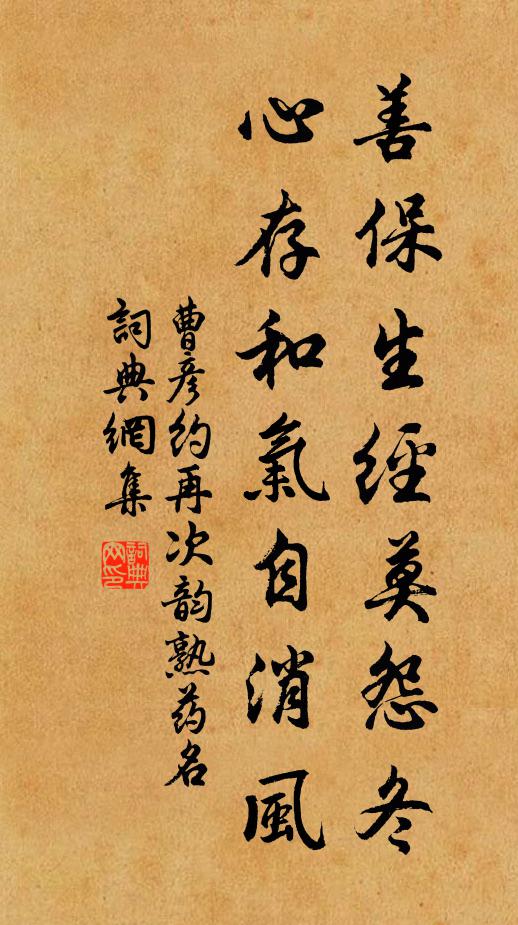 善保生經莫怨冬
心存和氣自消風
曹彦约再次韵熟药名
詞典網集
詞典
网印